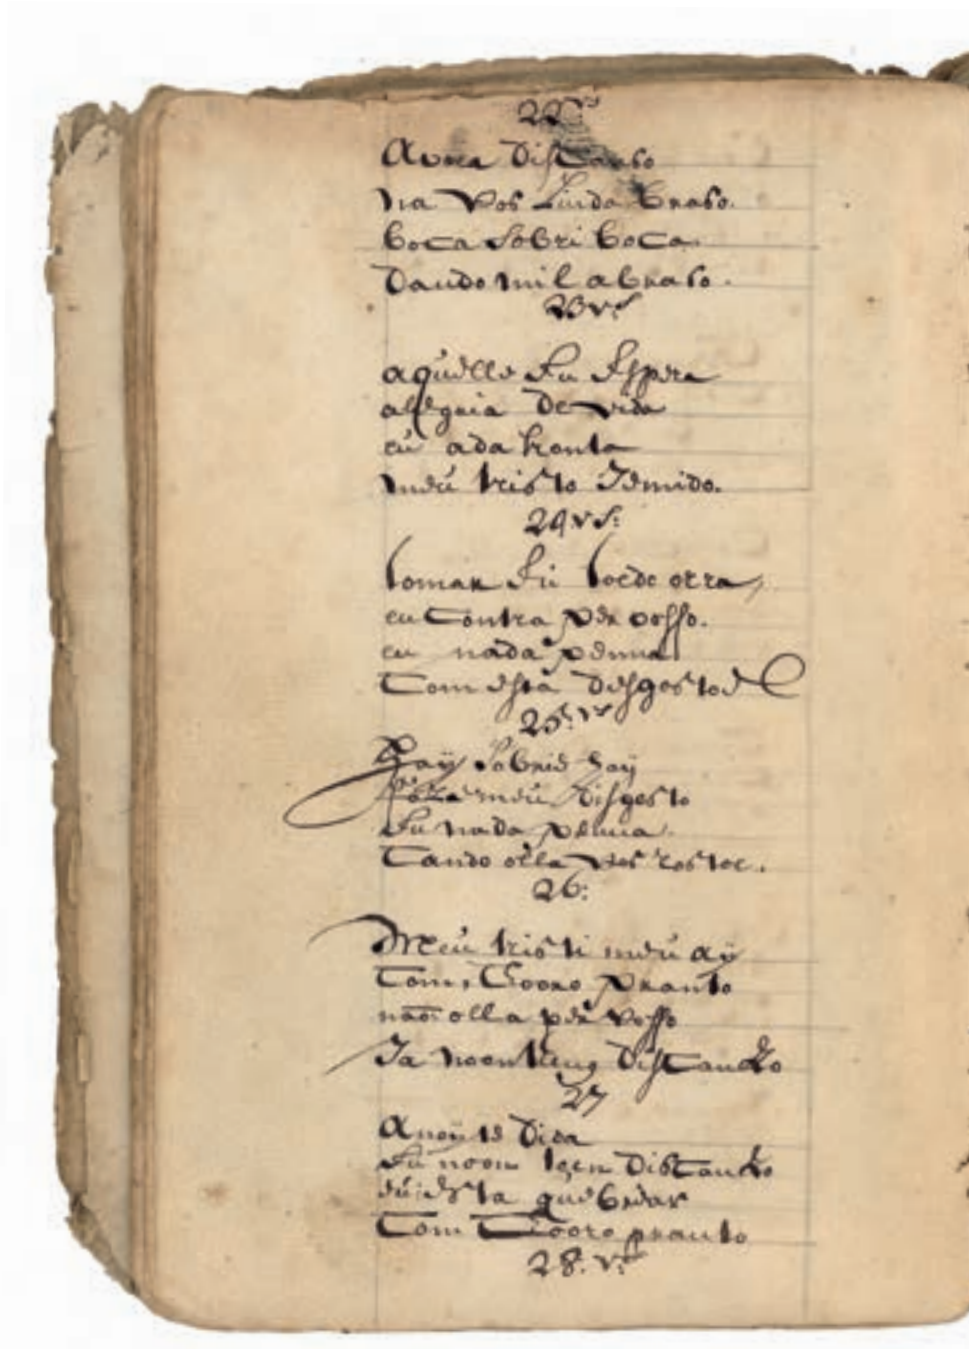 22 vs
Avora discanso
na vos Linda braso.
boca sobri boca.
Dando mil abraso.
23 vs
aquelle Eu Espera
alegria de vida
eu ada konta
meu tristo Jemido.
24 vs:
tomar Eu
eu Contra per vosso.
eu nada penna
Com esta desgosto
25: vs
Hay sabrie hay
meu disgosto
Eu nada penna.
Cando olla vos rostoe.
26:
Meu tristi meu ay
Com Chooro pranto
nao olla per vosso
Ja noon teng discanso
27
Anoyte Diea
Eu noon ten discanso
eu esta quebrar
Com Chooro pranto
28. vs